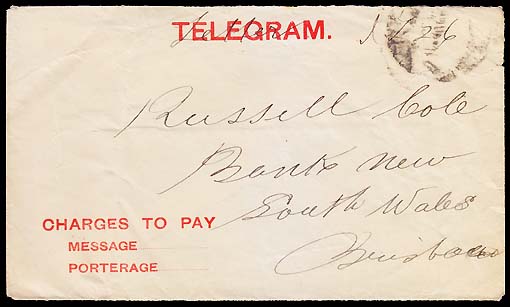 TELEGRAM.
Letter
Russell Cole
Bank New
South Wales
Brisbane
CHARGES TO PAY
MESSAGE
PORTERAGE